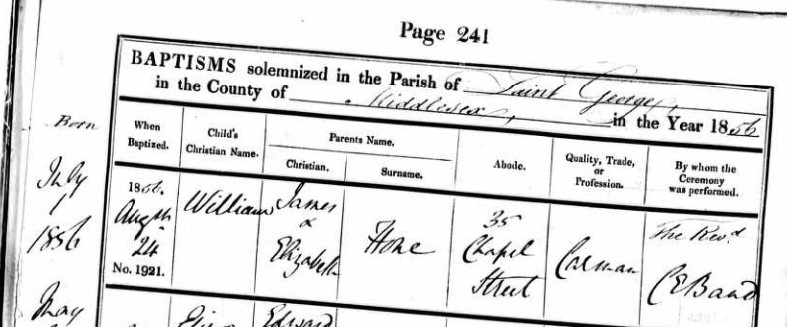 Page 241
BAPTISMS solemnized in the Parish of Saint George,
in the County of Middlesex, in the Year 1856
Born
When Baptized.
Child's Christian Name.
Parents Name.
Christian.
Surname.
Abode.
Quality, Trade, or Profession.
By whom the Ceremony was performed.
July
1
1856
1856.
Augst
24
No. 1921.
William
James
&
Elizabeth
Hone
35
Chapel
Street
Carman
The Revd
C E Band
May
Edward